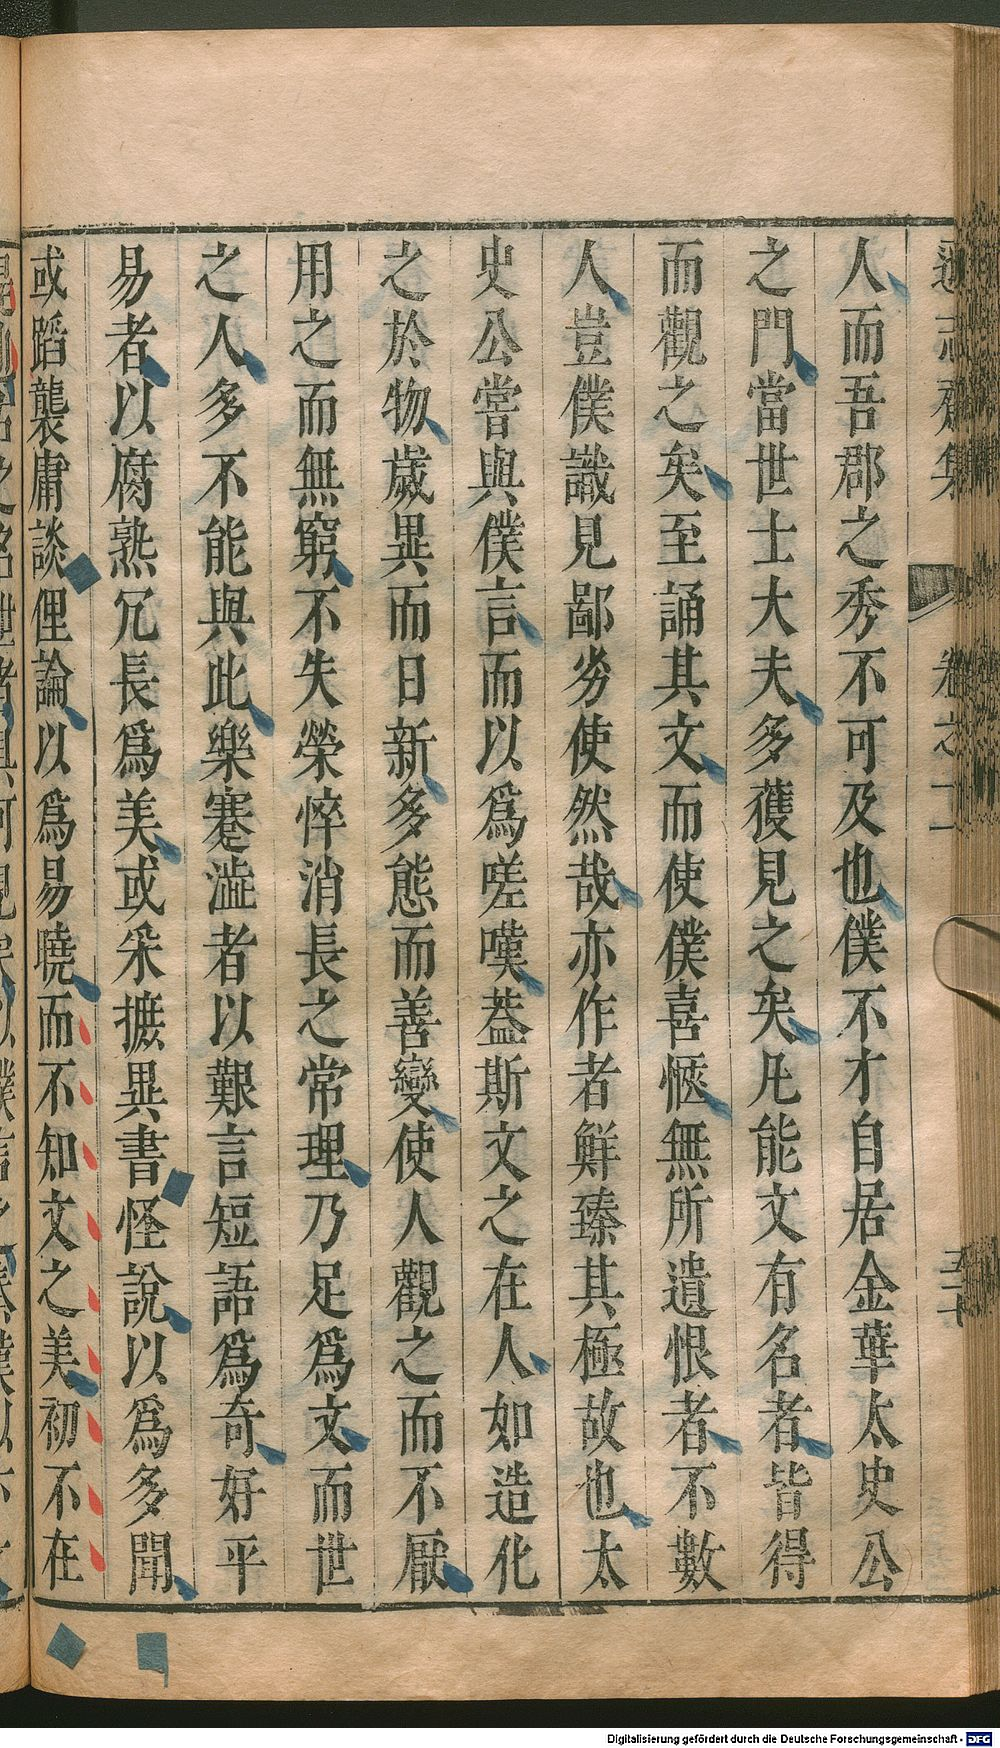 遜志齋集 卷之十一 五十
人而吾郡之秀不可及也僕不才自居金華太史公
之門當世士大夫多獲見之矣凡能文有名者皆得
而觀之矣至誦其文而使僕喜愜無所遺恨者不數
人豈僕識見鄙劣使然哉亦作者鮮臻其極故也太
史公嘗與僕言而以爲嗟嘆葢斯文之在人如造化
之於物歲異而日新多態而善變使人觀之而不厭
用之而無窮不失榮悴消長之常理乃足爲文而世
之人多不能與此樂蹇澁者以艱言短語爲奇好平
易者以腐熟冗長爲美或采摭異書怪說以爲多聞
或蹈襲庸談俚論以爲易曉而不知文之美初不在
Digitalisierung gefördert durch die Deutsche Forschungsgemeinschaft - DFG